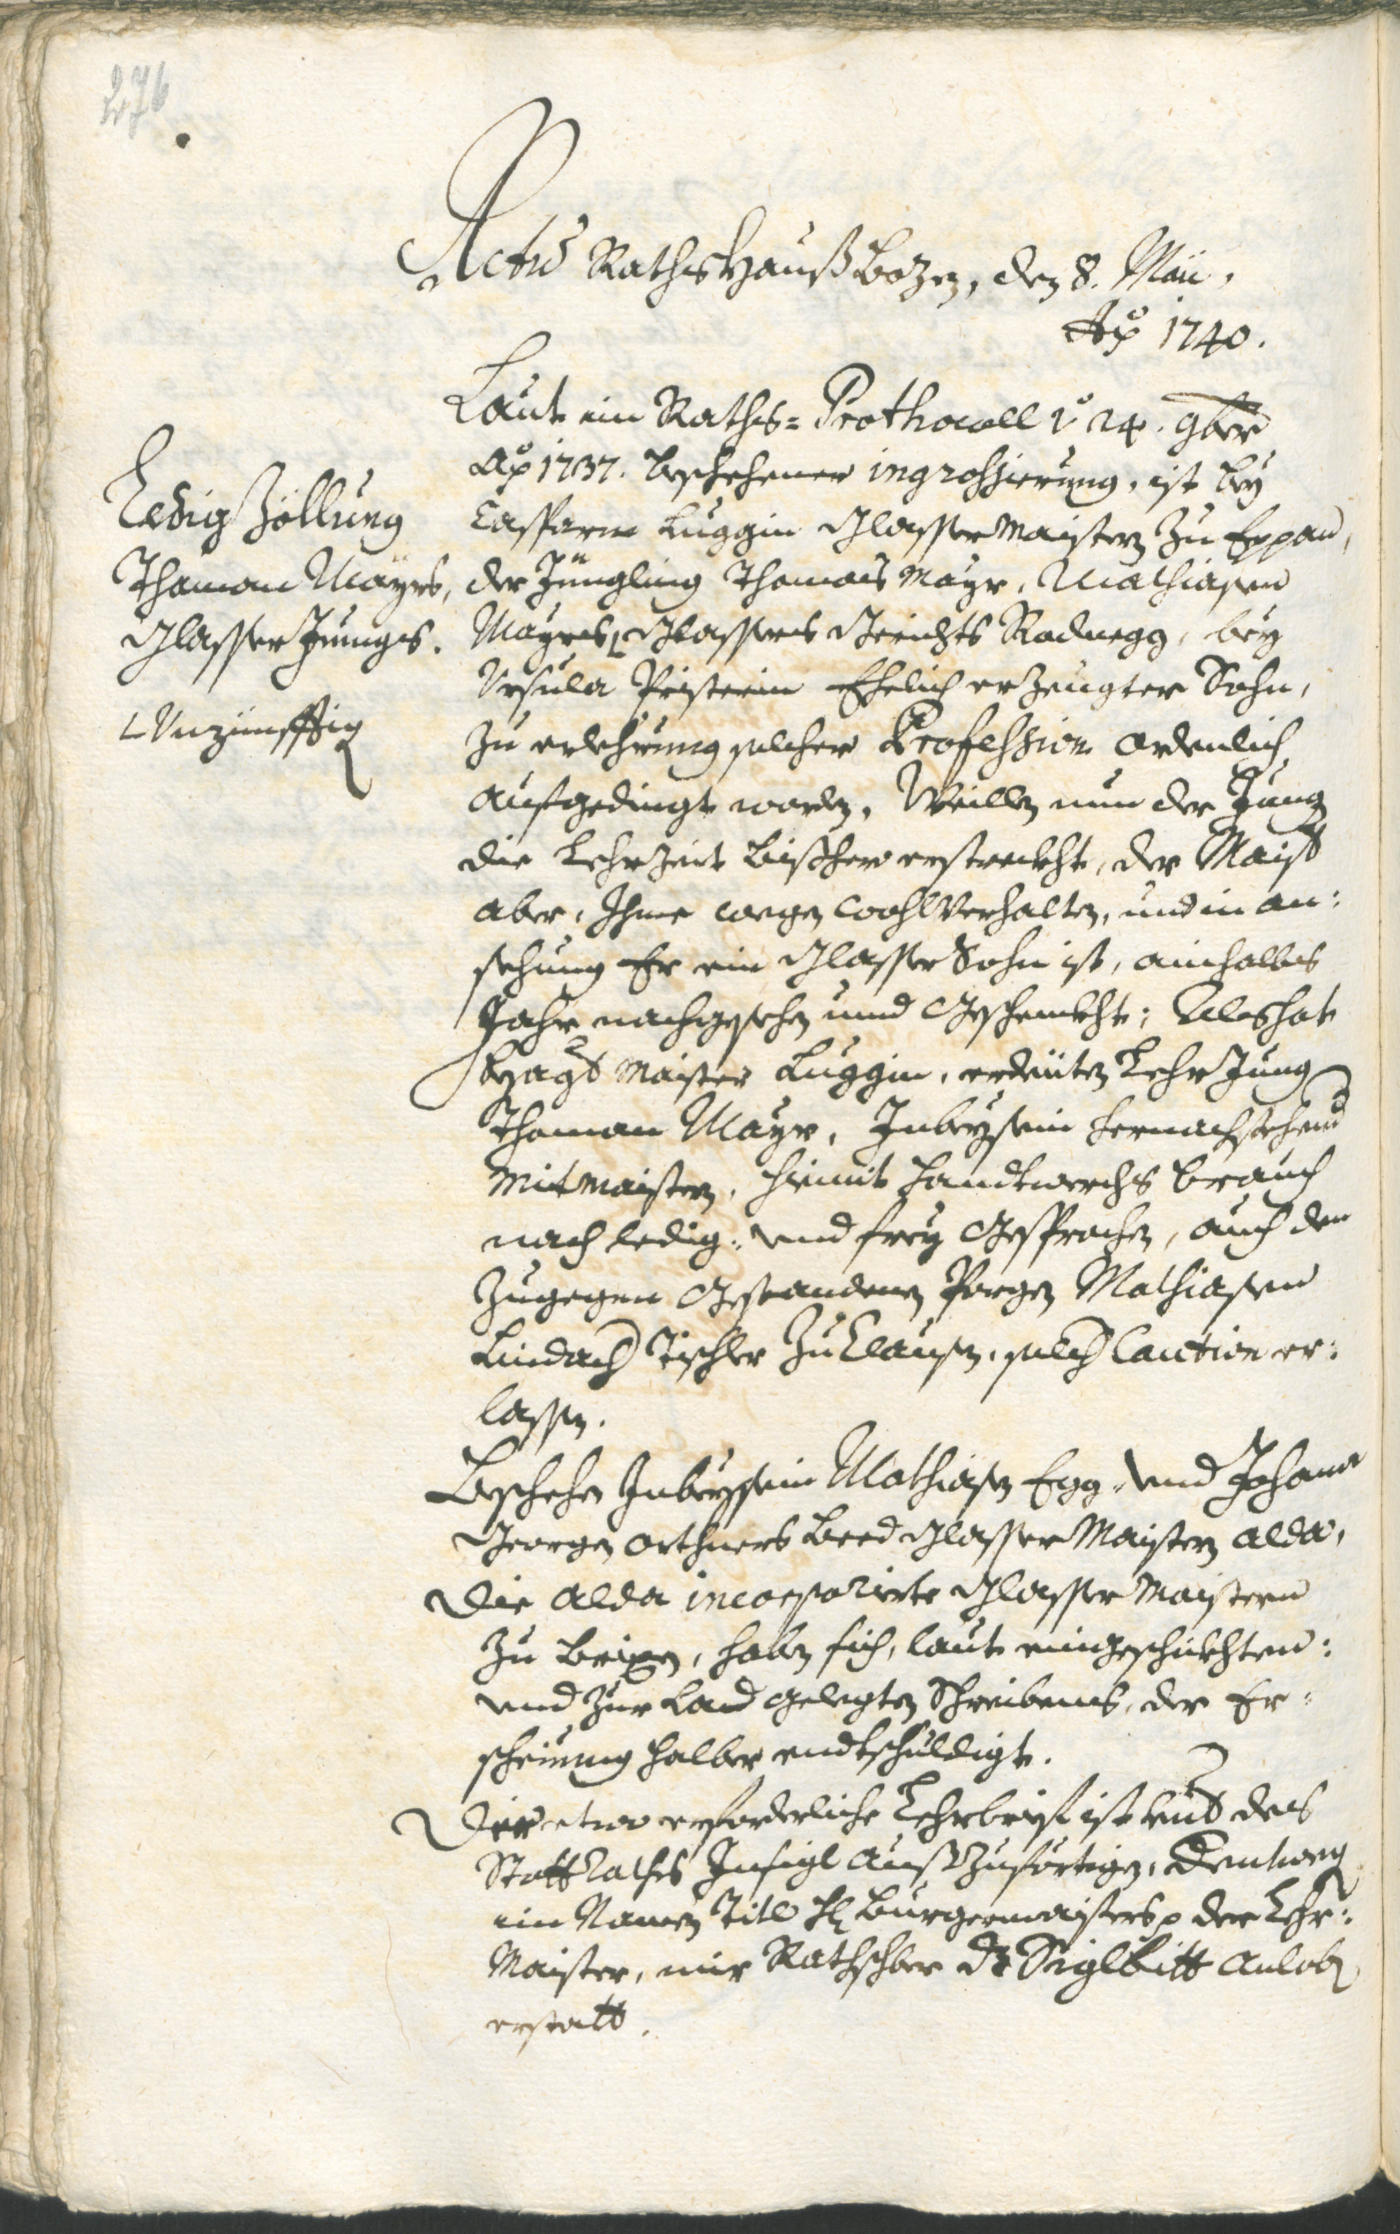 276
Actus RathsHauß Bozen, den 8. Maii.
Ao 1740.
Laut im Raths= Prothocoll vo 24. 9ber
Ao 1737. beschehener ingrossierung, ist bey
Ledig Zöllung
Thoman Mayrs,
Glasser Jungs.
Unzünfftig
Casparn Luggin Glasser Maistern zu Eppan,
der Jüngling Thomas Mayr, Mathiasen
Mayrs Glassers Gerichts Rodnegg, bey
Ursula Pristerin Ehelich erzeugter Sohn,
zu erlehrnung solcher Profession ordenlich
aufgedingt worden. Weillen nun der Jung
die Lehrzeit bishero erstreckht, der Maister
aber, Ihme wegen Wohlverhalten, und in an:
sehung Er ein Glasser Sohn ist, ain halbes
Jahr nachgesehen und Geschenckht; Als hat
besagter Maister Luggin, erdeuten Lehr Jung
Thoman Mayr, In beysein hernachstehend
Mitmaistern, hiemit handtwerchs brauch
nach ledig: und frey Gesprochen, auch den
zugegen Gestandenen Porgen Mathiasen
Lindach Tischler zu Clausen, solch Caution er:
lassen.
Beschehen In beysein Mathiasen Egg: und Johann
Georgen Orthners beed Glasser Maistern alda,
Die alda incorporierte Glasser Maistern
zu Brixen, haben sich, laut eingeschickhten:
und zur Lad gelegten Schreibens, der Er:
scheinung halber endtschuldigt.
Der etwo erforderliche Lehrbrief ist unter des
Statt Raths Insigl auszufertigen, Dentweg
im Namen Titl H: Burgermaisters der Lehr:
Maister, mir Rathschber die Siglbitt anlob
erstatt.